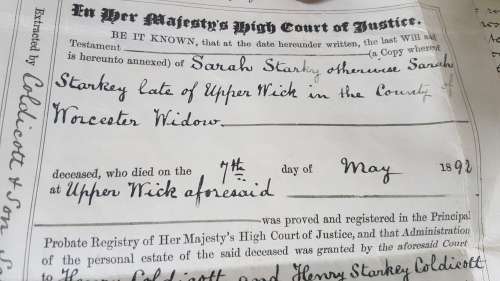 In Her Majesty's High Court of Justice.
BE IT KNOWN, that at the date hereunder written, the last Will and
Testament (a Copy whereof
is hereunto annexed) of Sarah Starky otherwise Sarah
Starkey late of Upper Wick in the County of
Worcester Widow
deceased, who died on the 7th day of May 1892
at Upper Wick aforesaid
was proved and registered in the Principal
Probate Registry of Her Majesty's High Court of Justice, and that Administration
of the personal estate of the said deceased was granted by the aforesaid Court
to Henry Coldicott and Henry Starkey Coldicott
Extracted by Coldicott & Son